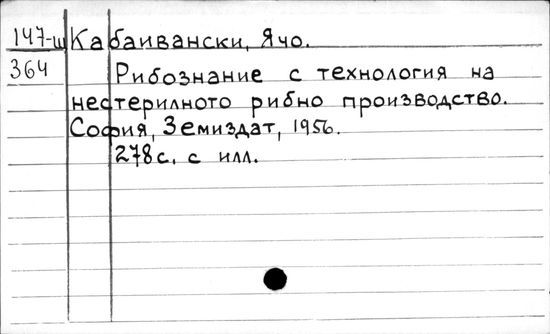 147-ш Кабаивански, Ячо.
364 Рибознание с технология на
нестерилното рибно производство.
София, Земиздат, 1956.
278 с. с илл.